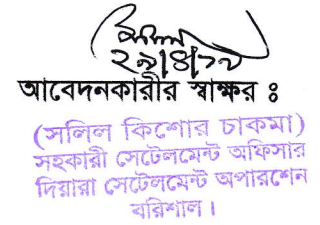 ২৯/৪/১৯
আবেদনকারীর স্বাক্ষর ঃ
(সলিল কিশোর চাকমা)
সহকারী সেটেলমেন্ট অফিসার
দিয়ারা সেটেলমেন্ট অপারশেন
বরিশাল।